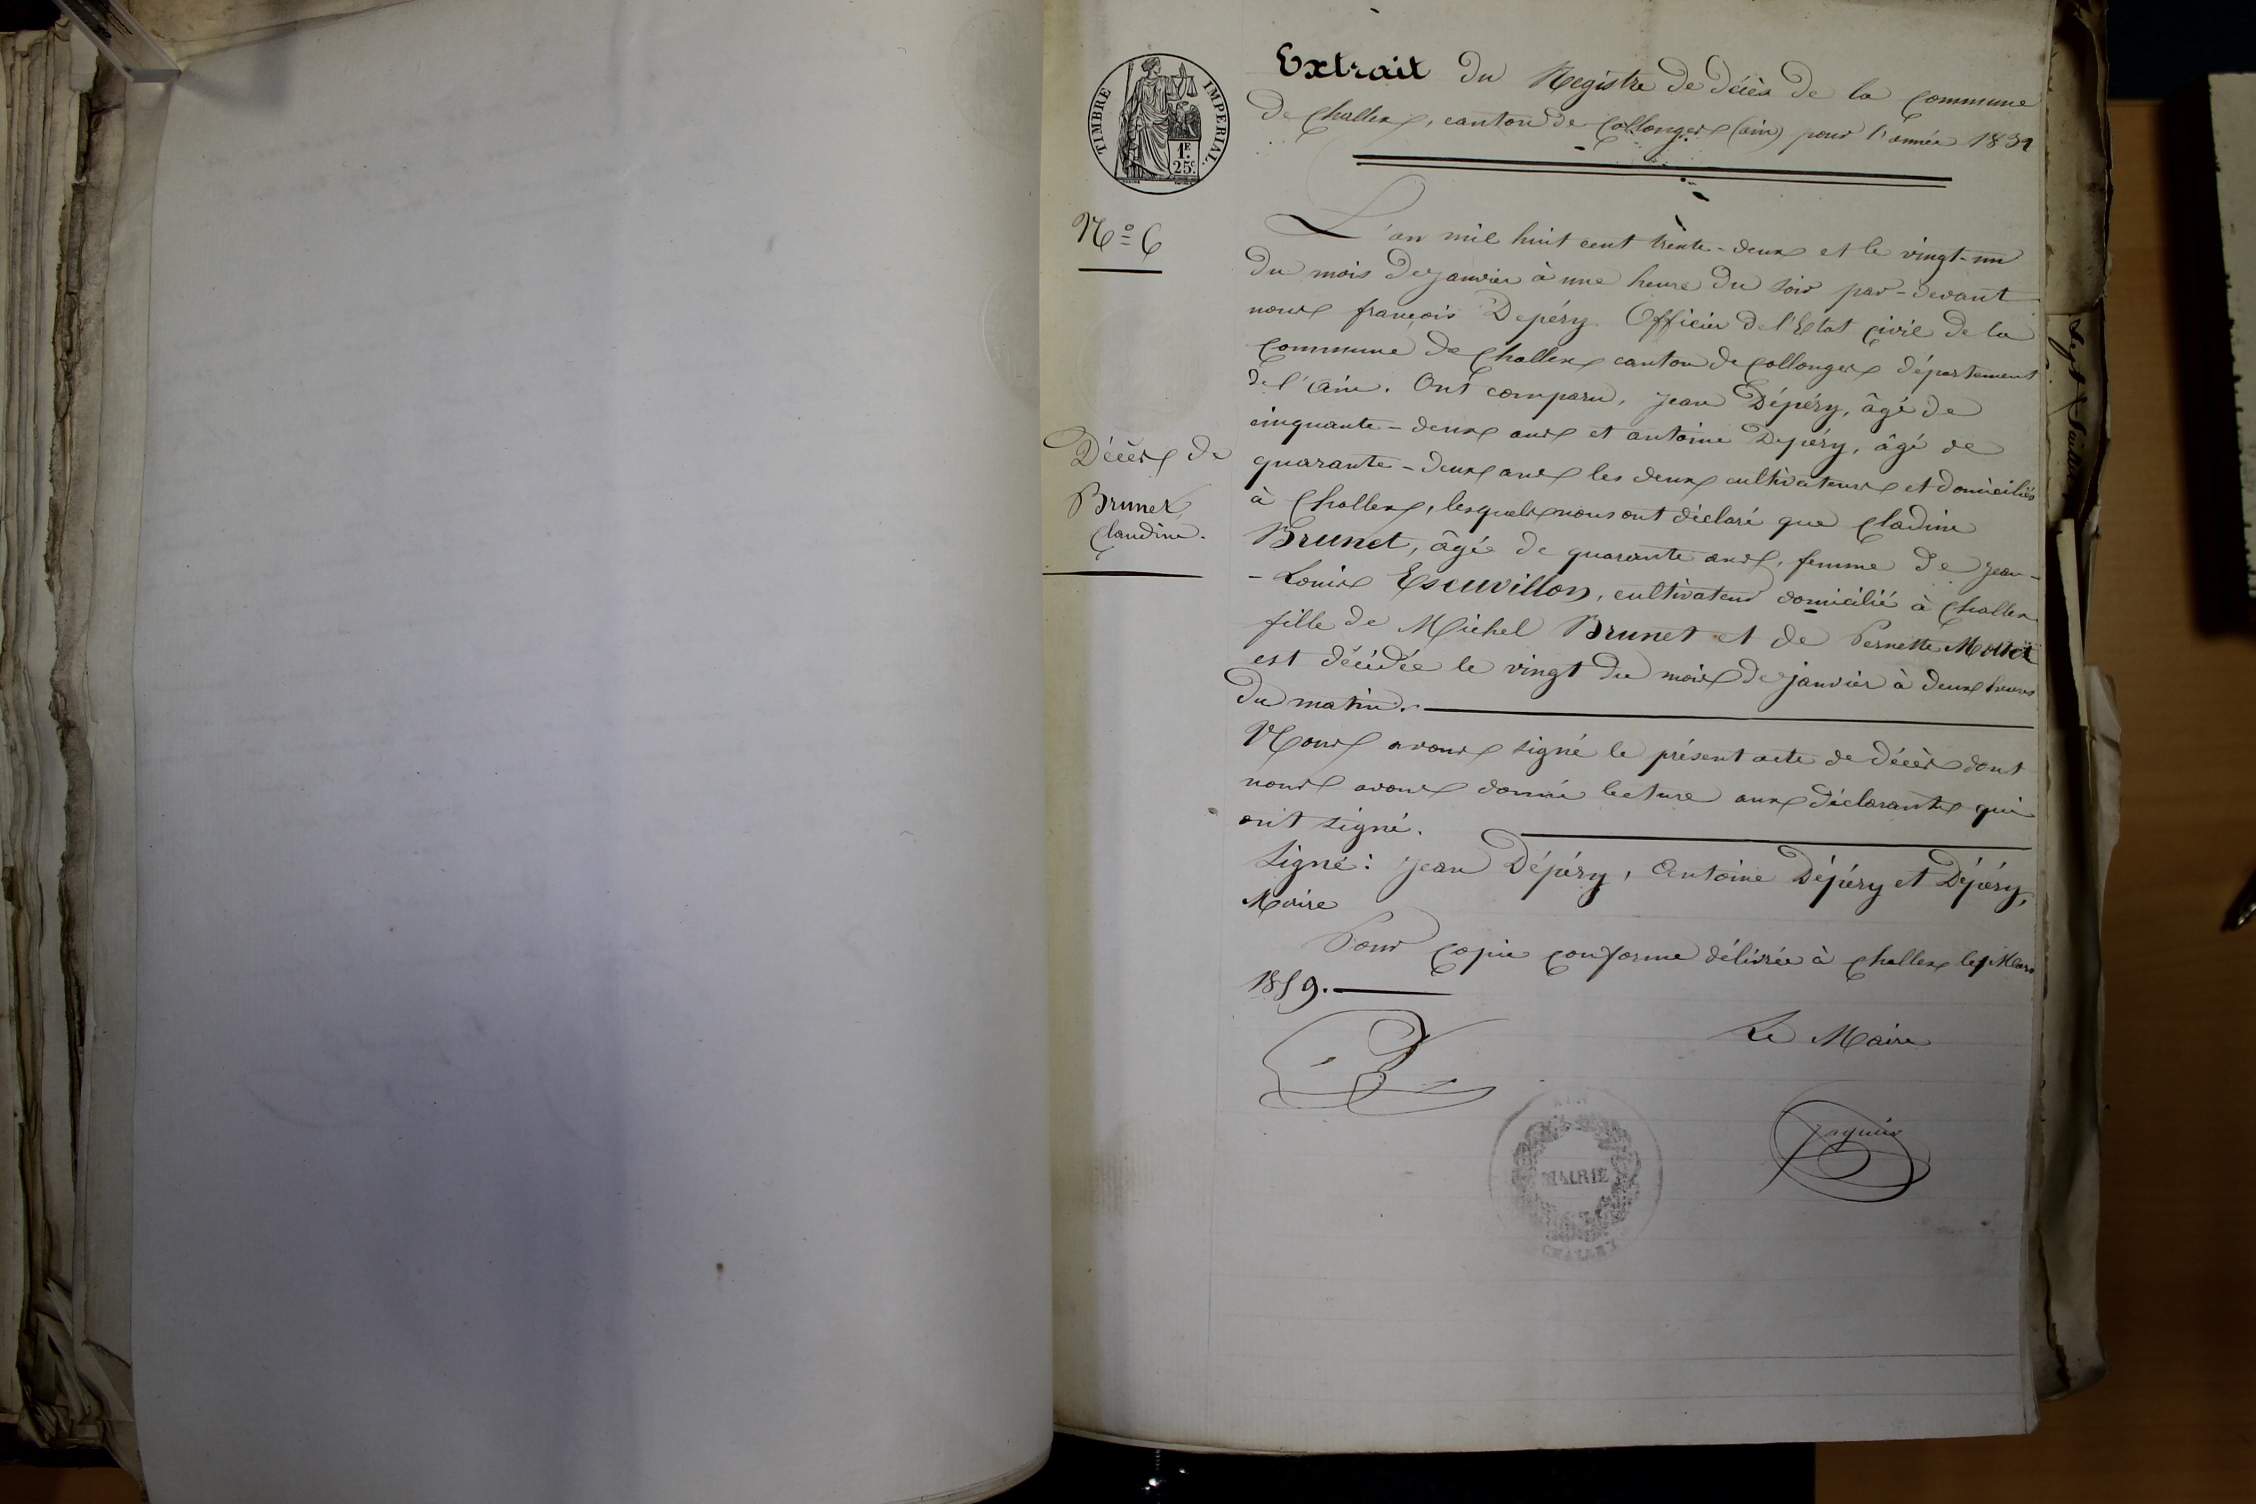 TIMBRE IMPERIAL.
1F.
25c.
Extrait du Registre de décès de la commune
de Challex, canton de Collonges (ain) pour l'année 1832
N° 6
L'an mil huit cent trente-deux et le vingt-un
du mois de janvier à une heure du soir par-devant
nous françois Depéry Officier de l'Etat Civil de la
Commune de Challex canton de Collonges département
de l'ain. Ont comparu, Jean Dépéry, âgé de
cinquante-deux ans et antoine Depéry, âgé de
quarante-deux ans les deux cultivateurs et domiciliés
à Challex, lesquels nous ont déclaré que Cladine
Brunet, âgé de quarante ans, femme de Jean-
-Louis Escuvillon, cultivateur domicilié à Challex
fille de Michel Brunet et de Pernette
est décédée le vingt du mois de janvier à deux heures
du matin.
Décès de
Brunet
Claudine.
Nous avons signé le présent acte de décès dont
nous avons donné lecture aux déclarants qui
ont signé.
Signé: Jean Dépéry, Antoine Dépéry et Dépéry,
Maire
Pour copie conforme délivrée à Challex le Mars
1859.
Le Maire
AIN
MAIRIE
CHALLEX